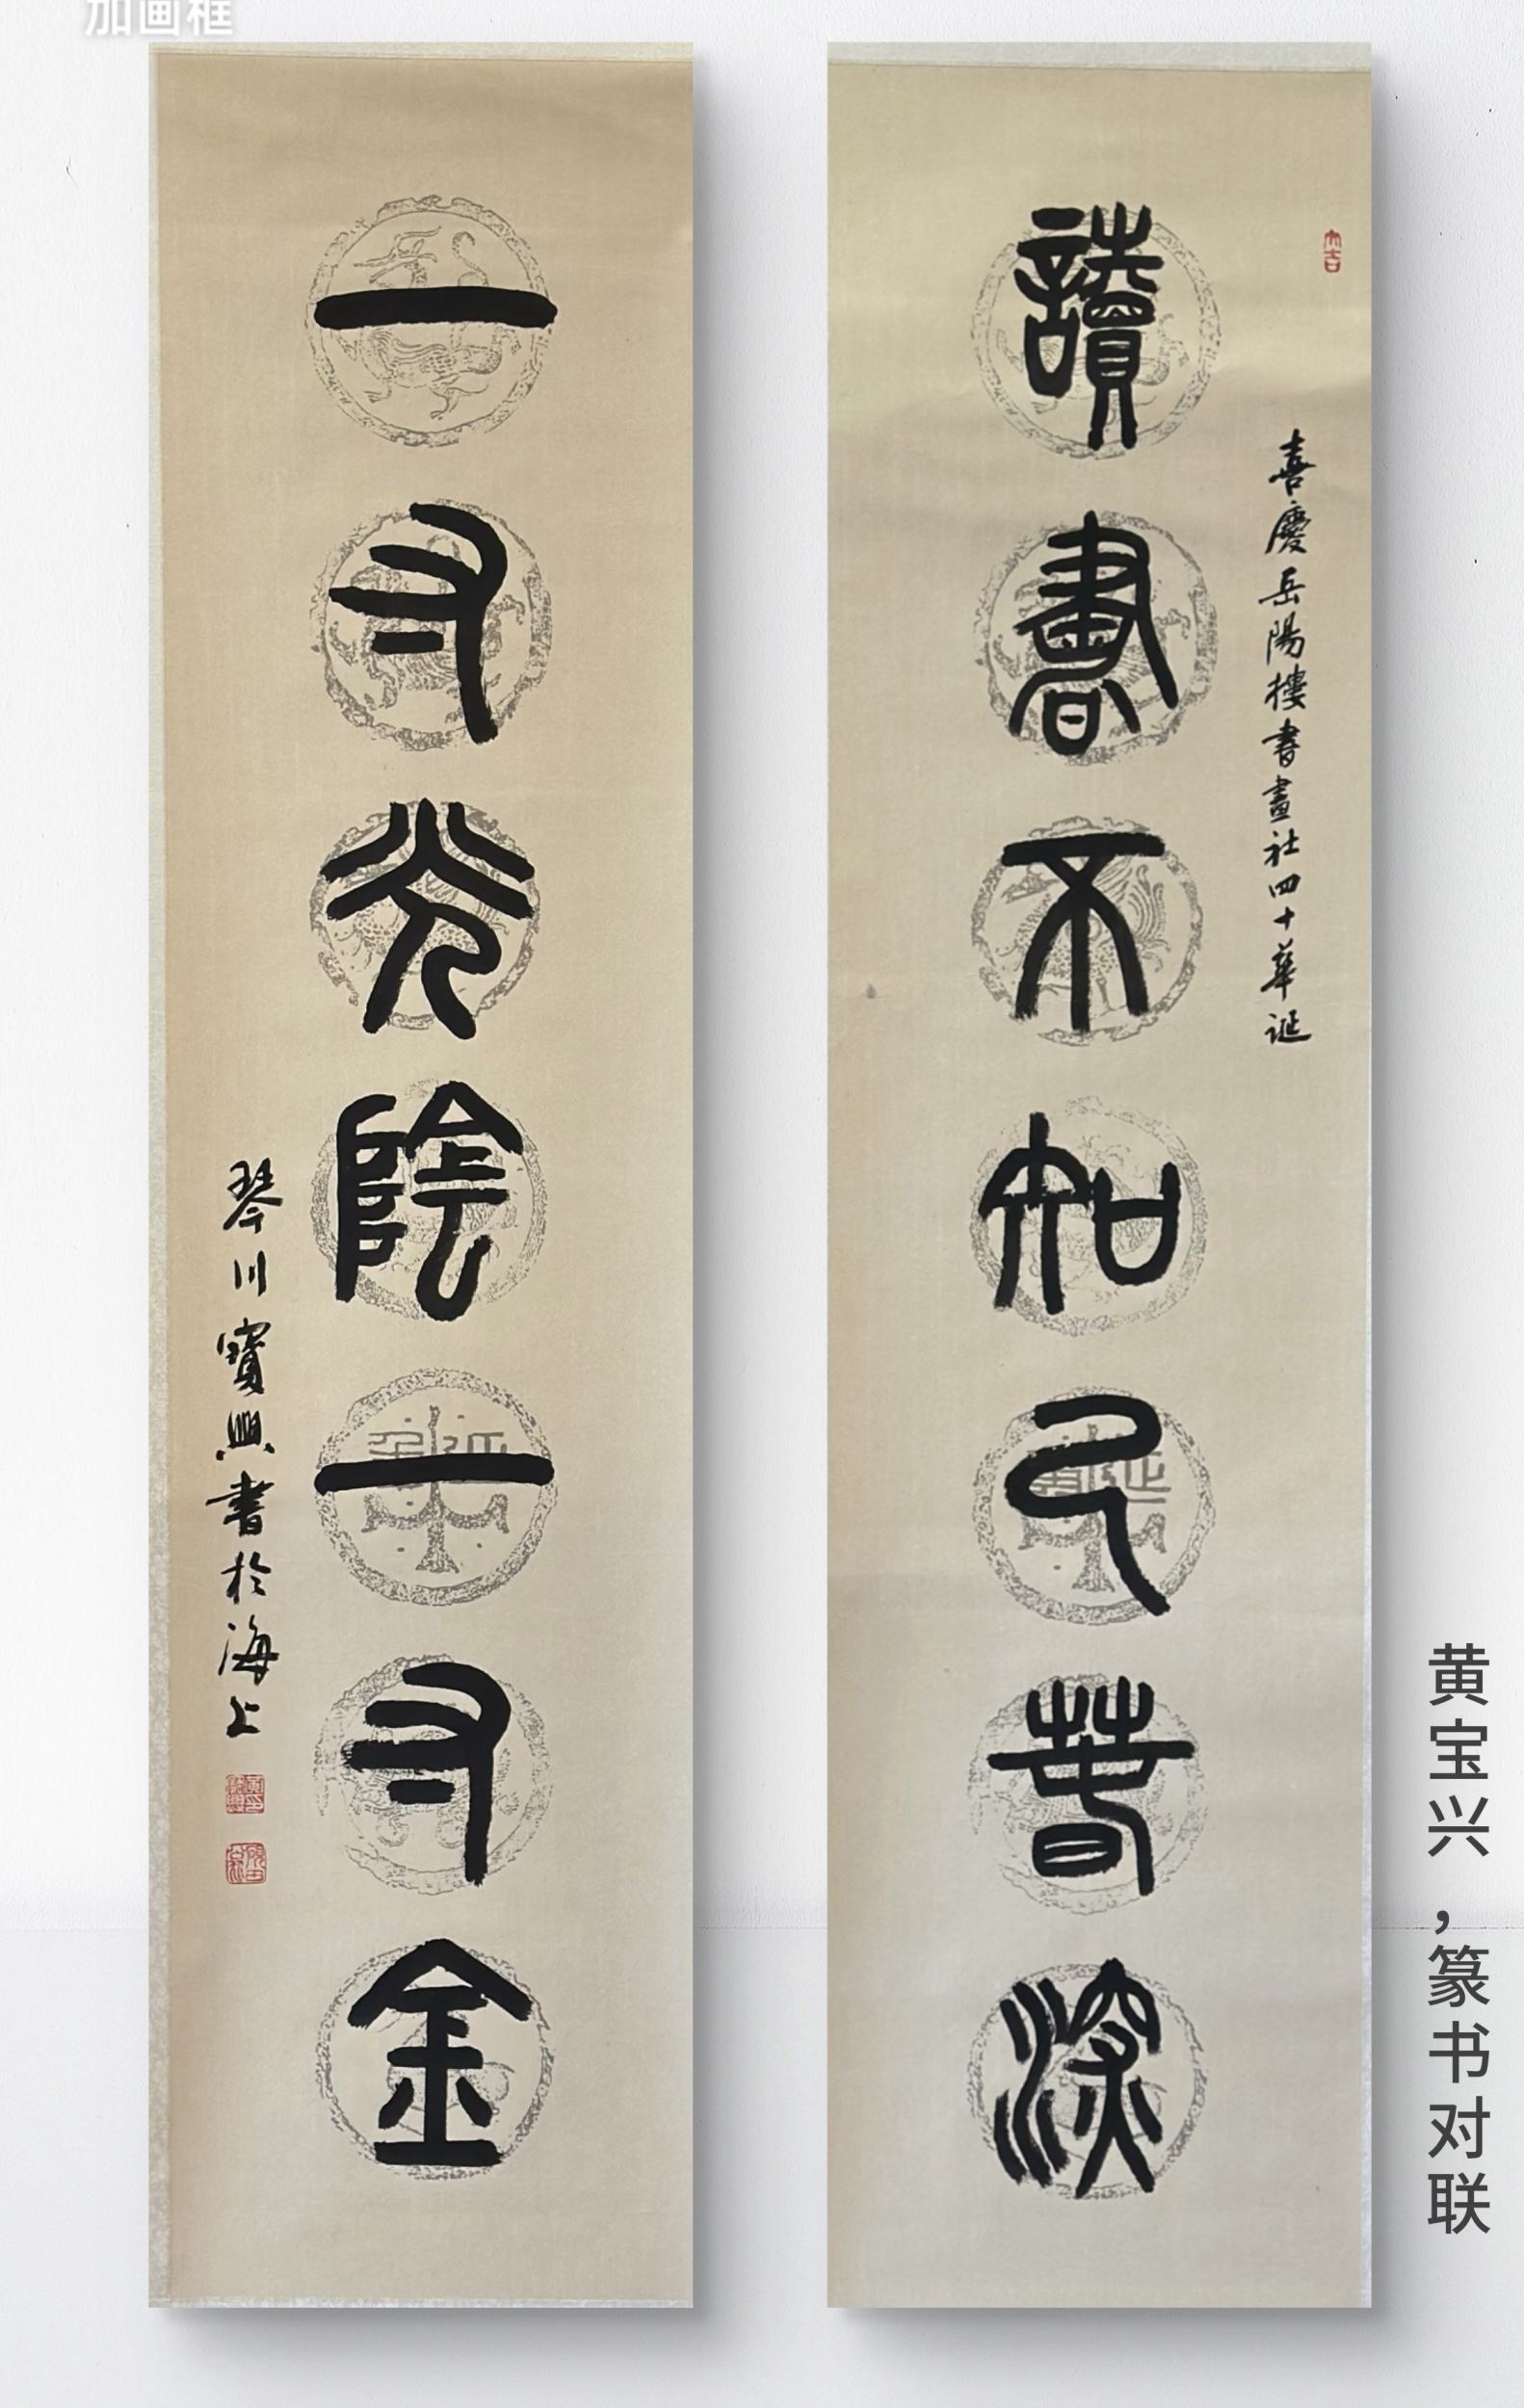 加画框
大吉
喜慶岳陽樓書畫社四十華誕
讀書不知己春深
一寸光陰一寸金
琴川寶興書於海上
黄宝兴，篆书对联